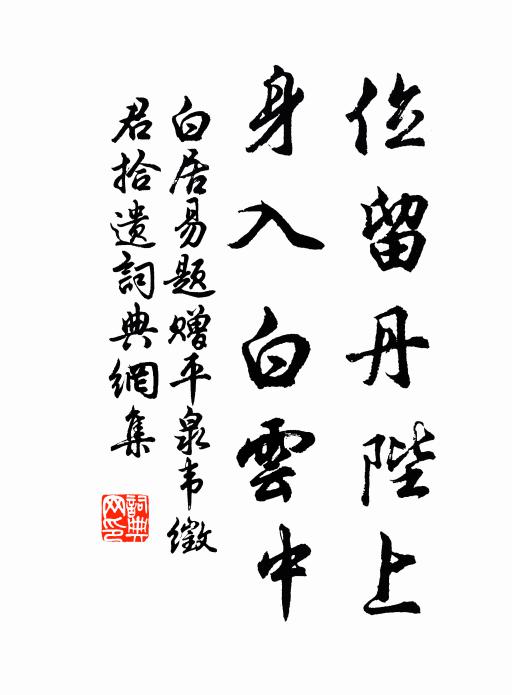 位留丹陛上
身入白雲中
白居易题赠平泉韦徵
君拾遗詞典網集
詞典
网印